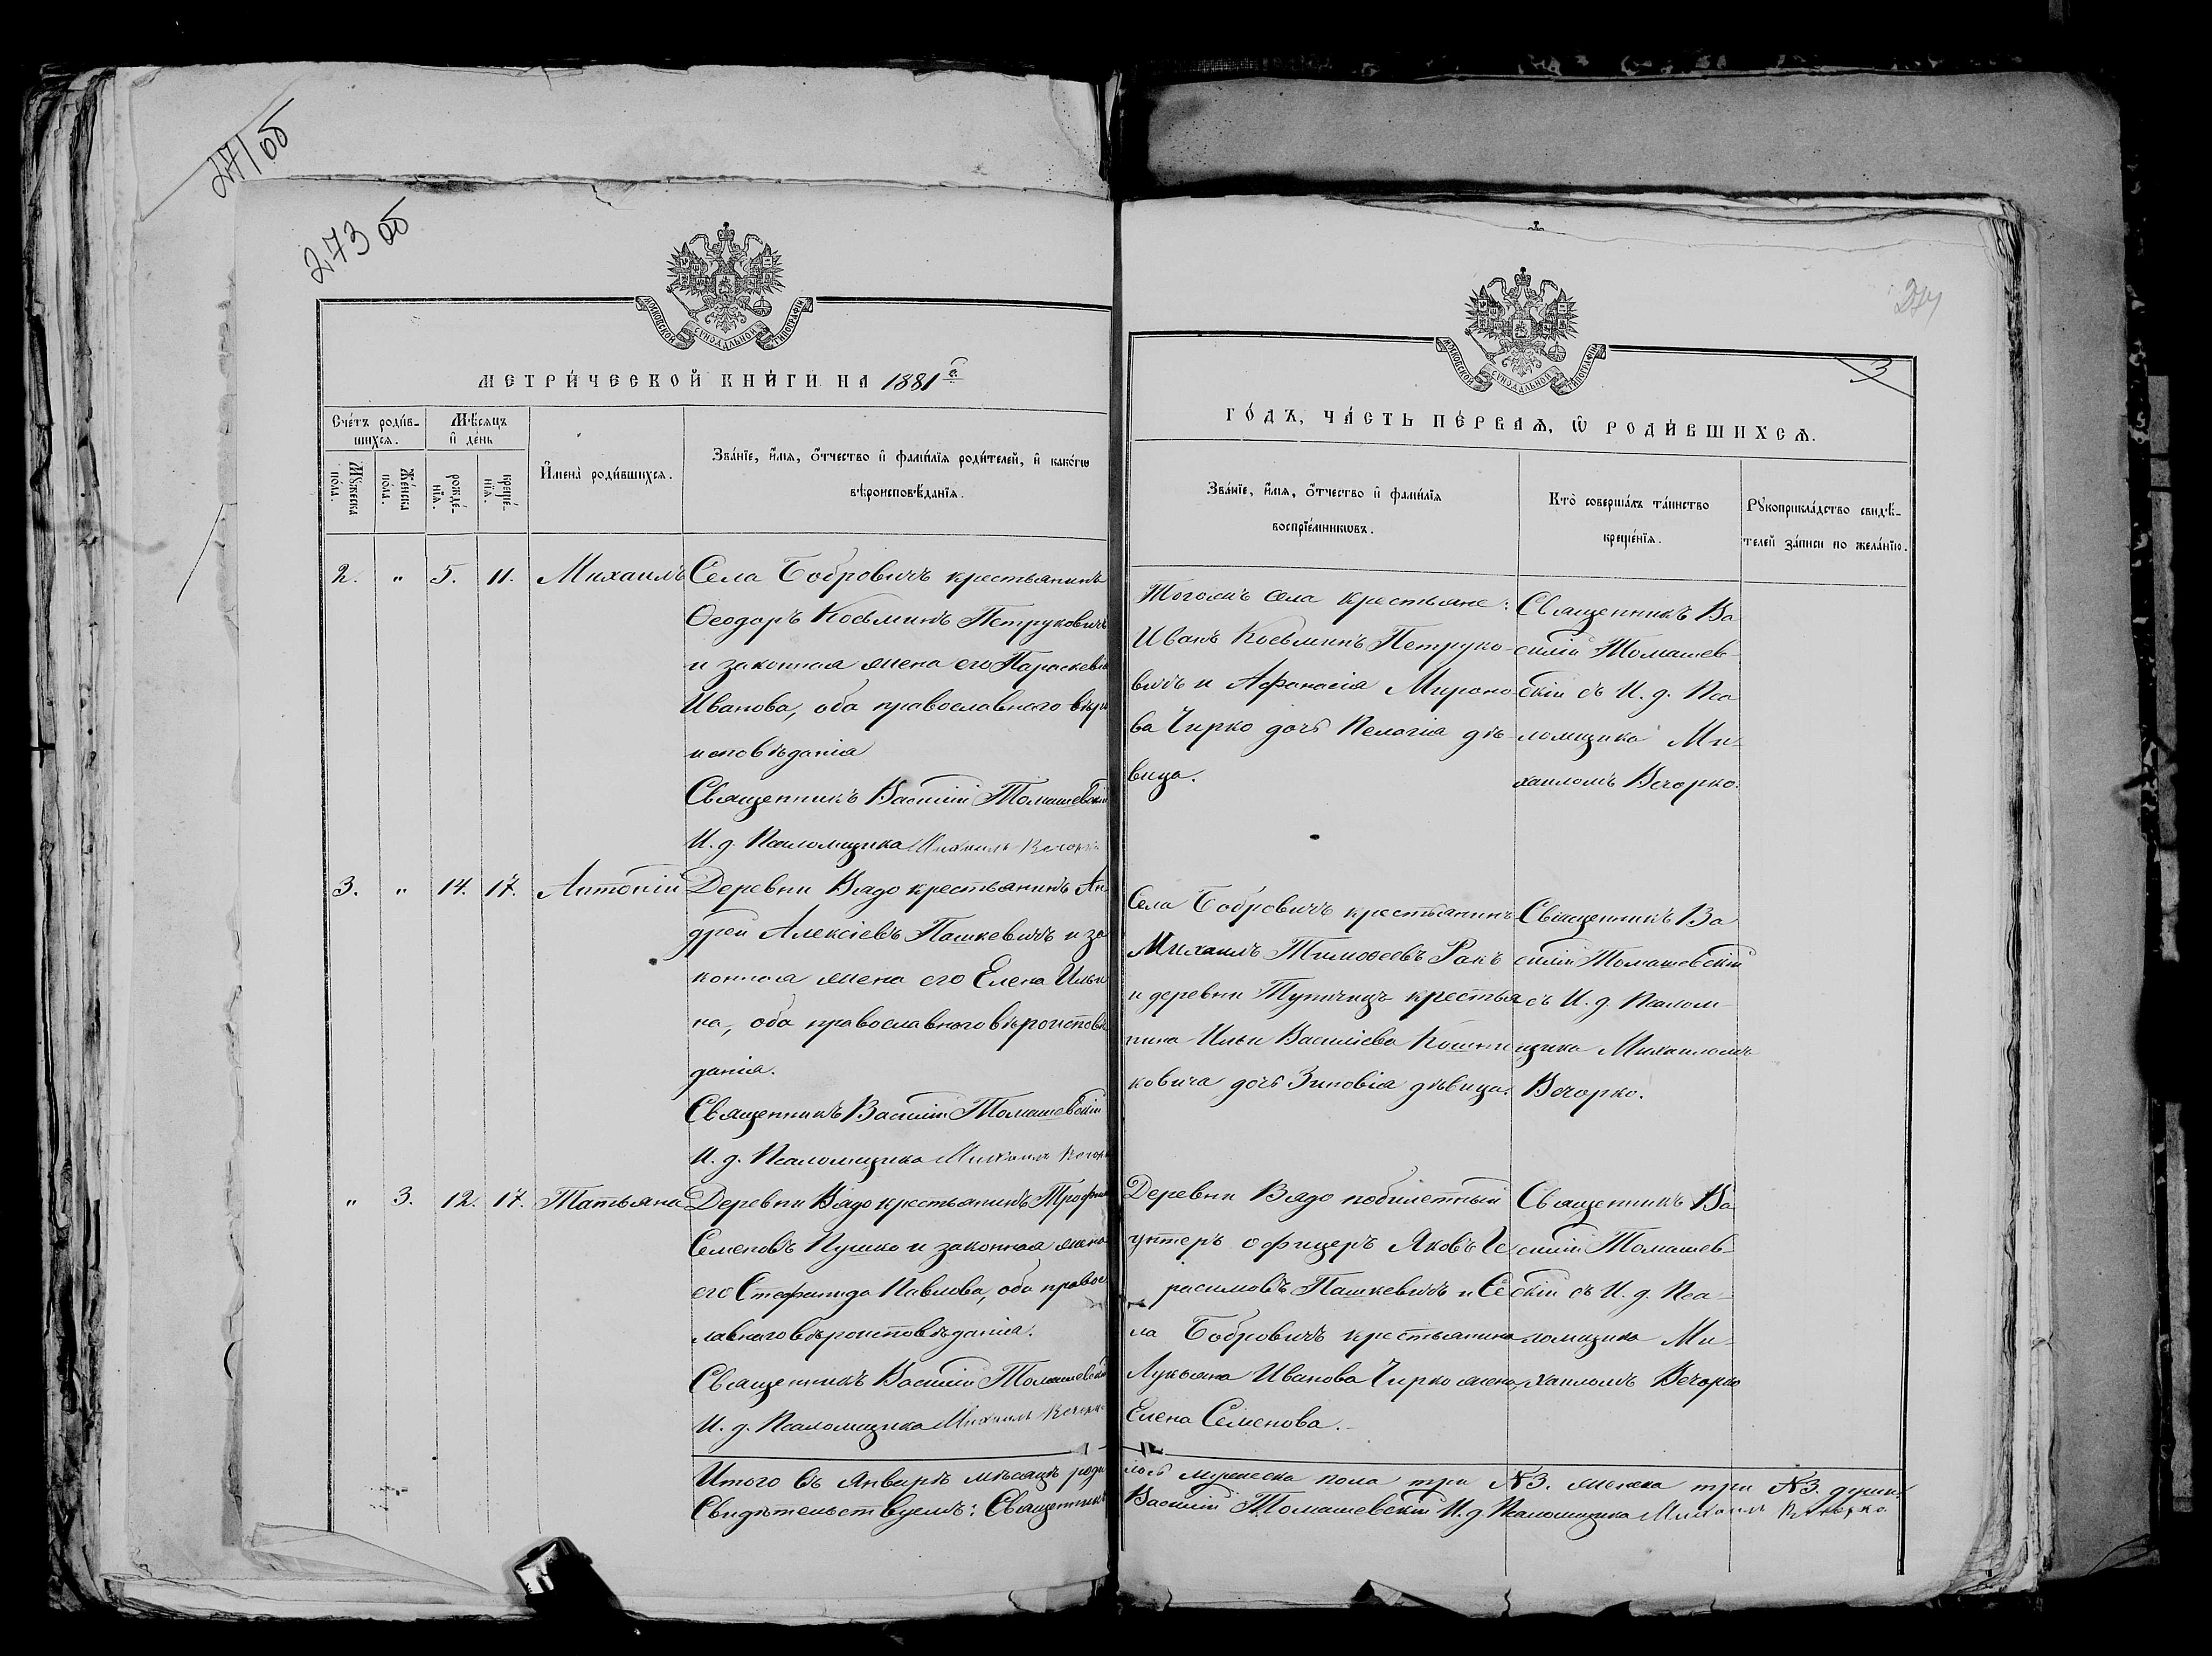 271 об
273 об
МОСКОВСКОЙ СѴНОДАЛЬНОЙ ТИПОГРАФІИ
МЕТРИ́ЧЕСКОЙ КНИ́ГИ НА 1881й
Сче́тъ роди́в-
шихсѧ.
Мѣ́сѧцъ
и҆ де́нь
Мꙋ́жеска
по́ла.
Же́нска
по́ла.
рожде́-
нїѧ.
креще́-
нїѧ.
И҆мена̀ роди́вшихсѧ.
Зва́нїе, и҆́мѧ, ѻ҆́тчество и҆ фами́лїѧ роди́телей, и҆ како́гѡ
вѣроисповѣ́данїѧ.
2. " 5. 11. Михаилъ Села Бобровичъ крестьянинъ
Ѳеодоръ Косьминъ Петруковичъ
и законная жена его Параскева
Иванова, оба православнаго вѣро
исповѣданія
Священникъ Василій Томашевскій
И. д. Псаломщика Михаилъ Вечорко
3. " 14. 17. Антоній Деревни Вядо крестьянинъ Ан
дрей Алексіевъ Пашкевичъ и за
конная жена его Елена Ильи
на, оба православнаго вѣроисповѣ
данія.
Священникъ Василій Томашевскій
И. д. Псаломщика Михаилъ Вечорко
" 3. 12. 17. Татьяна Деревни Вядо крестьянинъ Трофим
Семеновъ Пушко и законная жена
его Стефанида Павлова, оба правос
лавнаго вѣроисповѣданія.
Священникъ Василій Томашевскій
И. д. Псаломщика Михаилъ Вечорко
Итого въ Январѣ мѣсяцѣ роди
Свидѣтельствуемъ: Священникъ
274
3
МОСКОВСКОЙ СѴНОДАЛЬНОЙ ТИПОГРАФІИ
ГО́ДЪ, ЧА́СТЬ ПЕ́РВАѦ, Ѡ҆ РОДИ́ВШИХСѦ.
Зва́нїе, и҆́мѧ, ѻ҆́тчество и҆ фами́лїѧ
воспрїе́мникѡвъ.
Кто̀ соверша́лъ та́инство
креще́нїѧ.
Рꙋкоприкла́дство свидѣ́-
телей за́писи по жела́нїю.
Тогожъ села крестьяне:
Иванъ Косьминъ Петруко-
вичъ и Афанасія Мироно
ва Чирко дочь Пелагія дѣ-
вица.
Священникъ Ва
силій Томашев-
скій съ И. д. Пса
ломщика Ми-
хаиломъ Вечорко.
Села Бобровичъ крестьянинъ
Михаилъ Тимоѳеевъ Ракъ
и деревни Тупичицъ крестья
нина Ильи Василіева
ковича дочь Зиновія дѣвица.
Священникъ Ва
силій Томашевскій
съ И. д. Псалом-
щика Михаиломъ
Вечорко.
Деревни Вядо побилетный
унтеръ офицеръ Яковъ Ге
расимовъ Пашкевичъ и Се
ла Бобровичъ крестьянина
Лукьяна Иванова Чирко жена,
Елена Семенова.
Священникъ Ва
силій Томашев-
скій съ И. д. Пса-
ломщика Ми-
хаиломъ Вечорко
лось мужеска пола три №3. женска три №3. души.
Василій Томашевскій И. д. Псаломщика Михаилъ Вечорко.